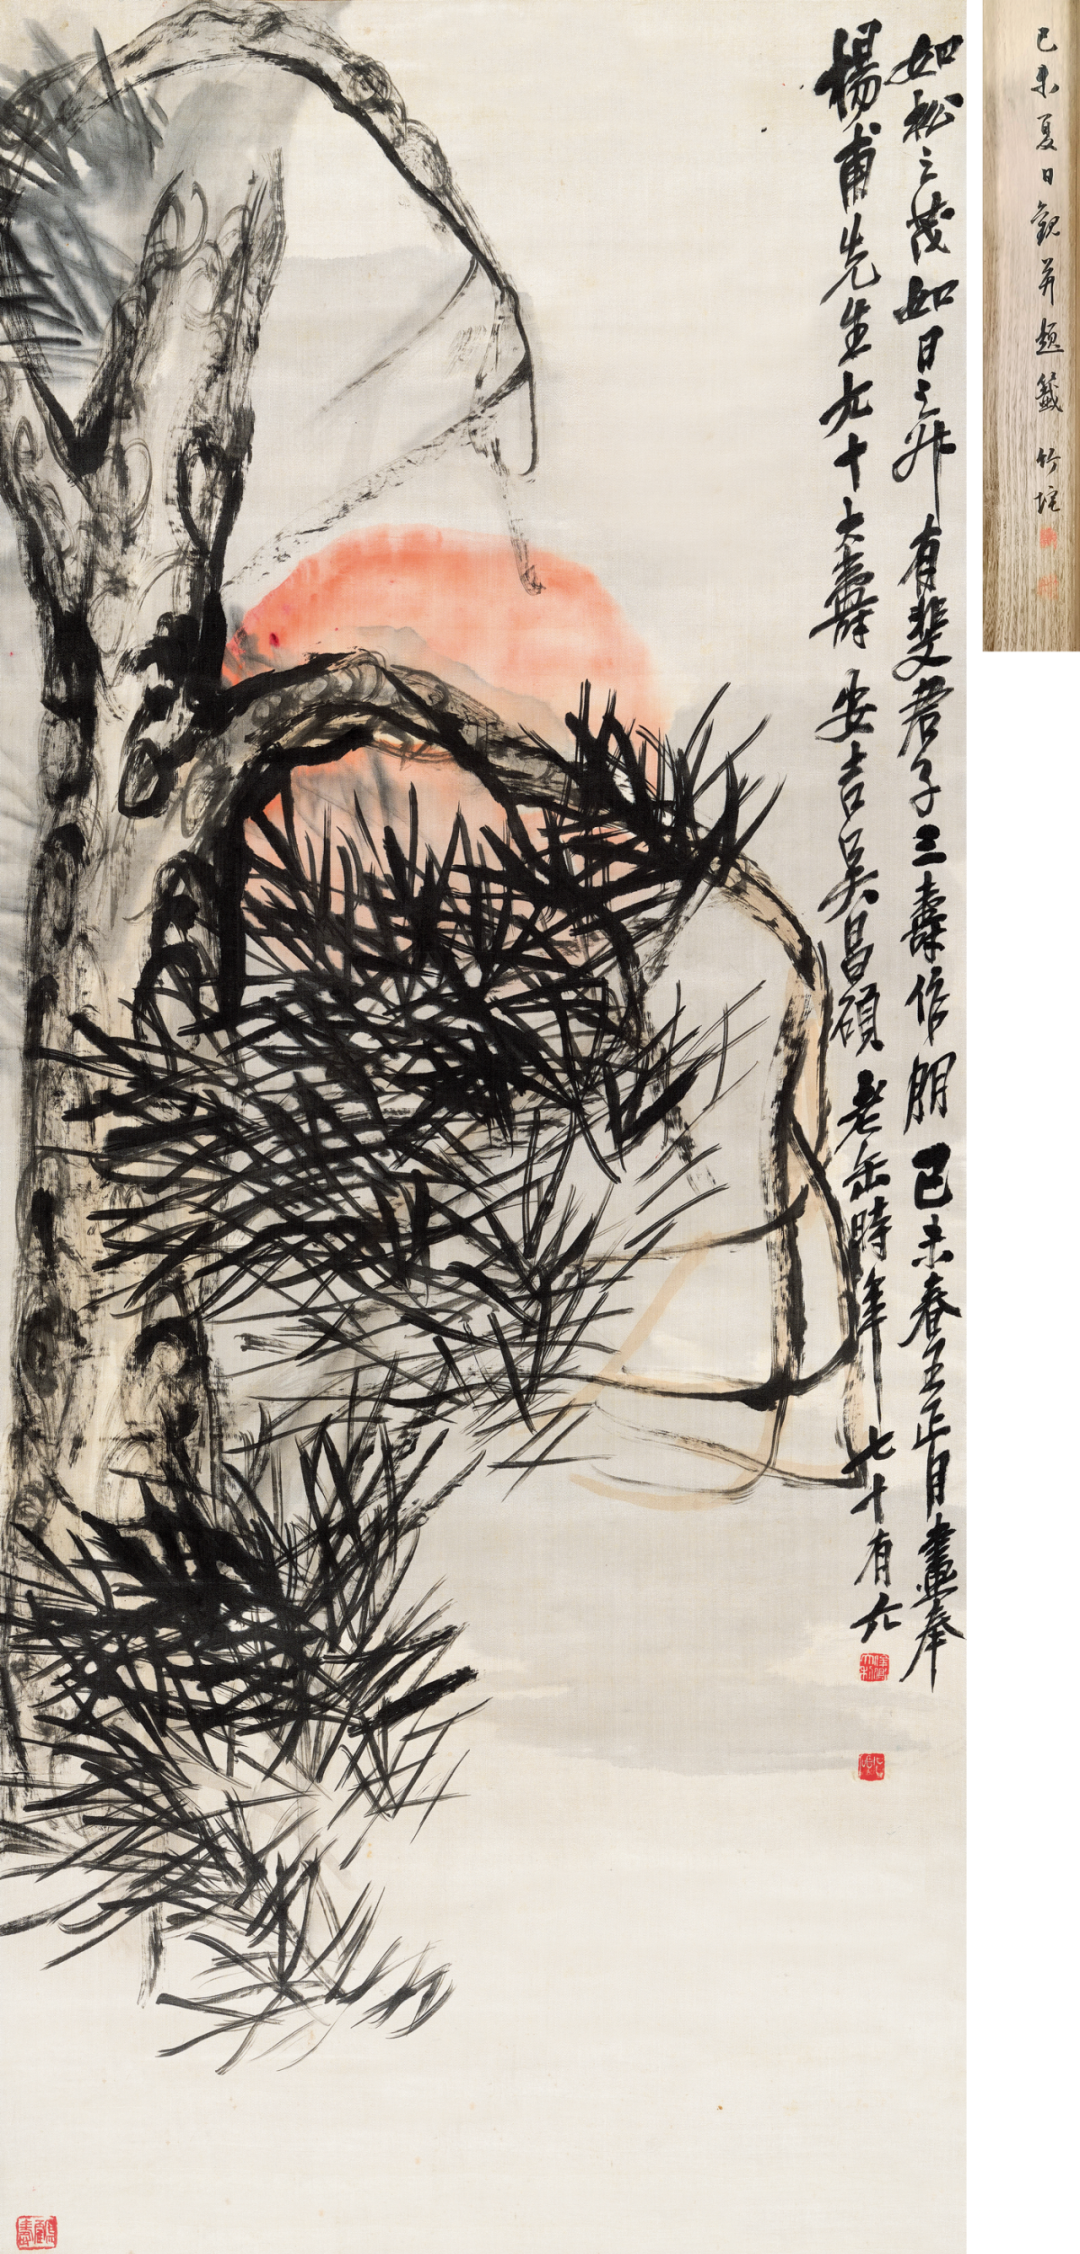 如松之茂如日之升有斐君子三壽作朋己未春王正月畫奉
楊甫先生九十大壽安吉吳昌碩老缶時年七十有六
己未夏日觀并題籤竹坨